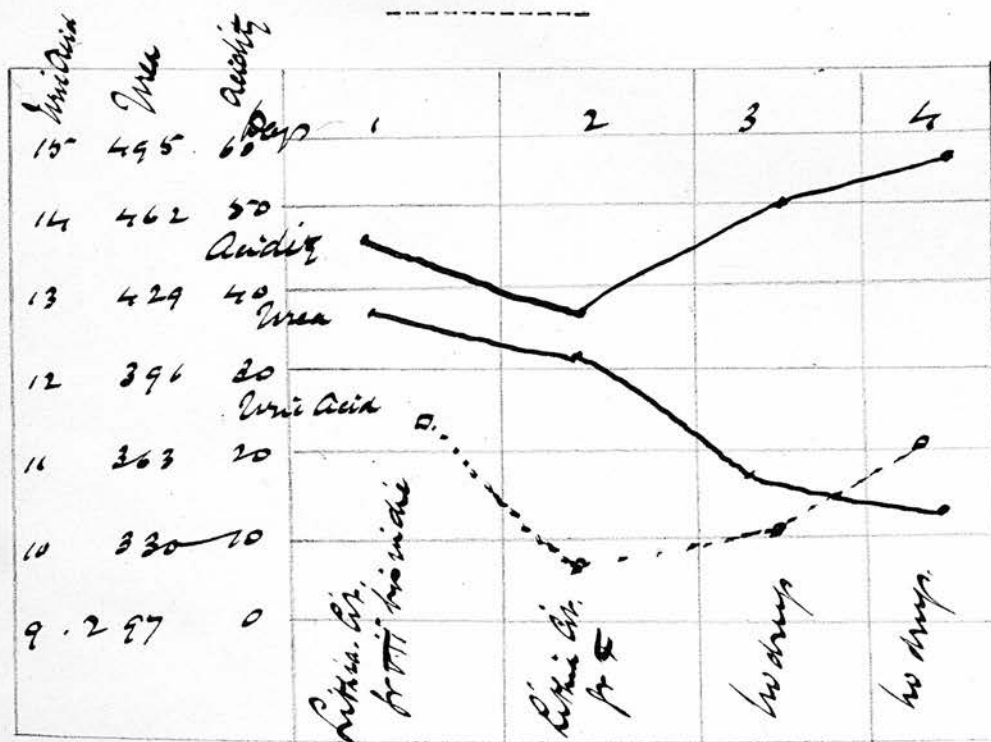 Uric Acid Urea Acidity
Days 1 2 3 4
15 495 60
14 462 50
Acidity
13 429 40
Urea
12 396 30
Uric Acid
11 363 20
10 330 10
9 . 297 0
Lithia. Cit.
gr VII bis in die
Lithia Cit.
gr X
no drugs
no drugs.